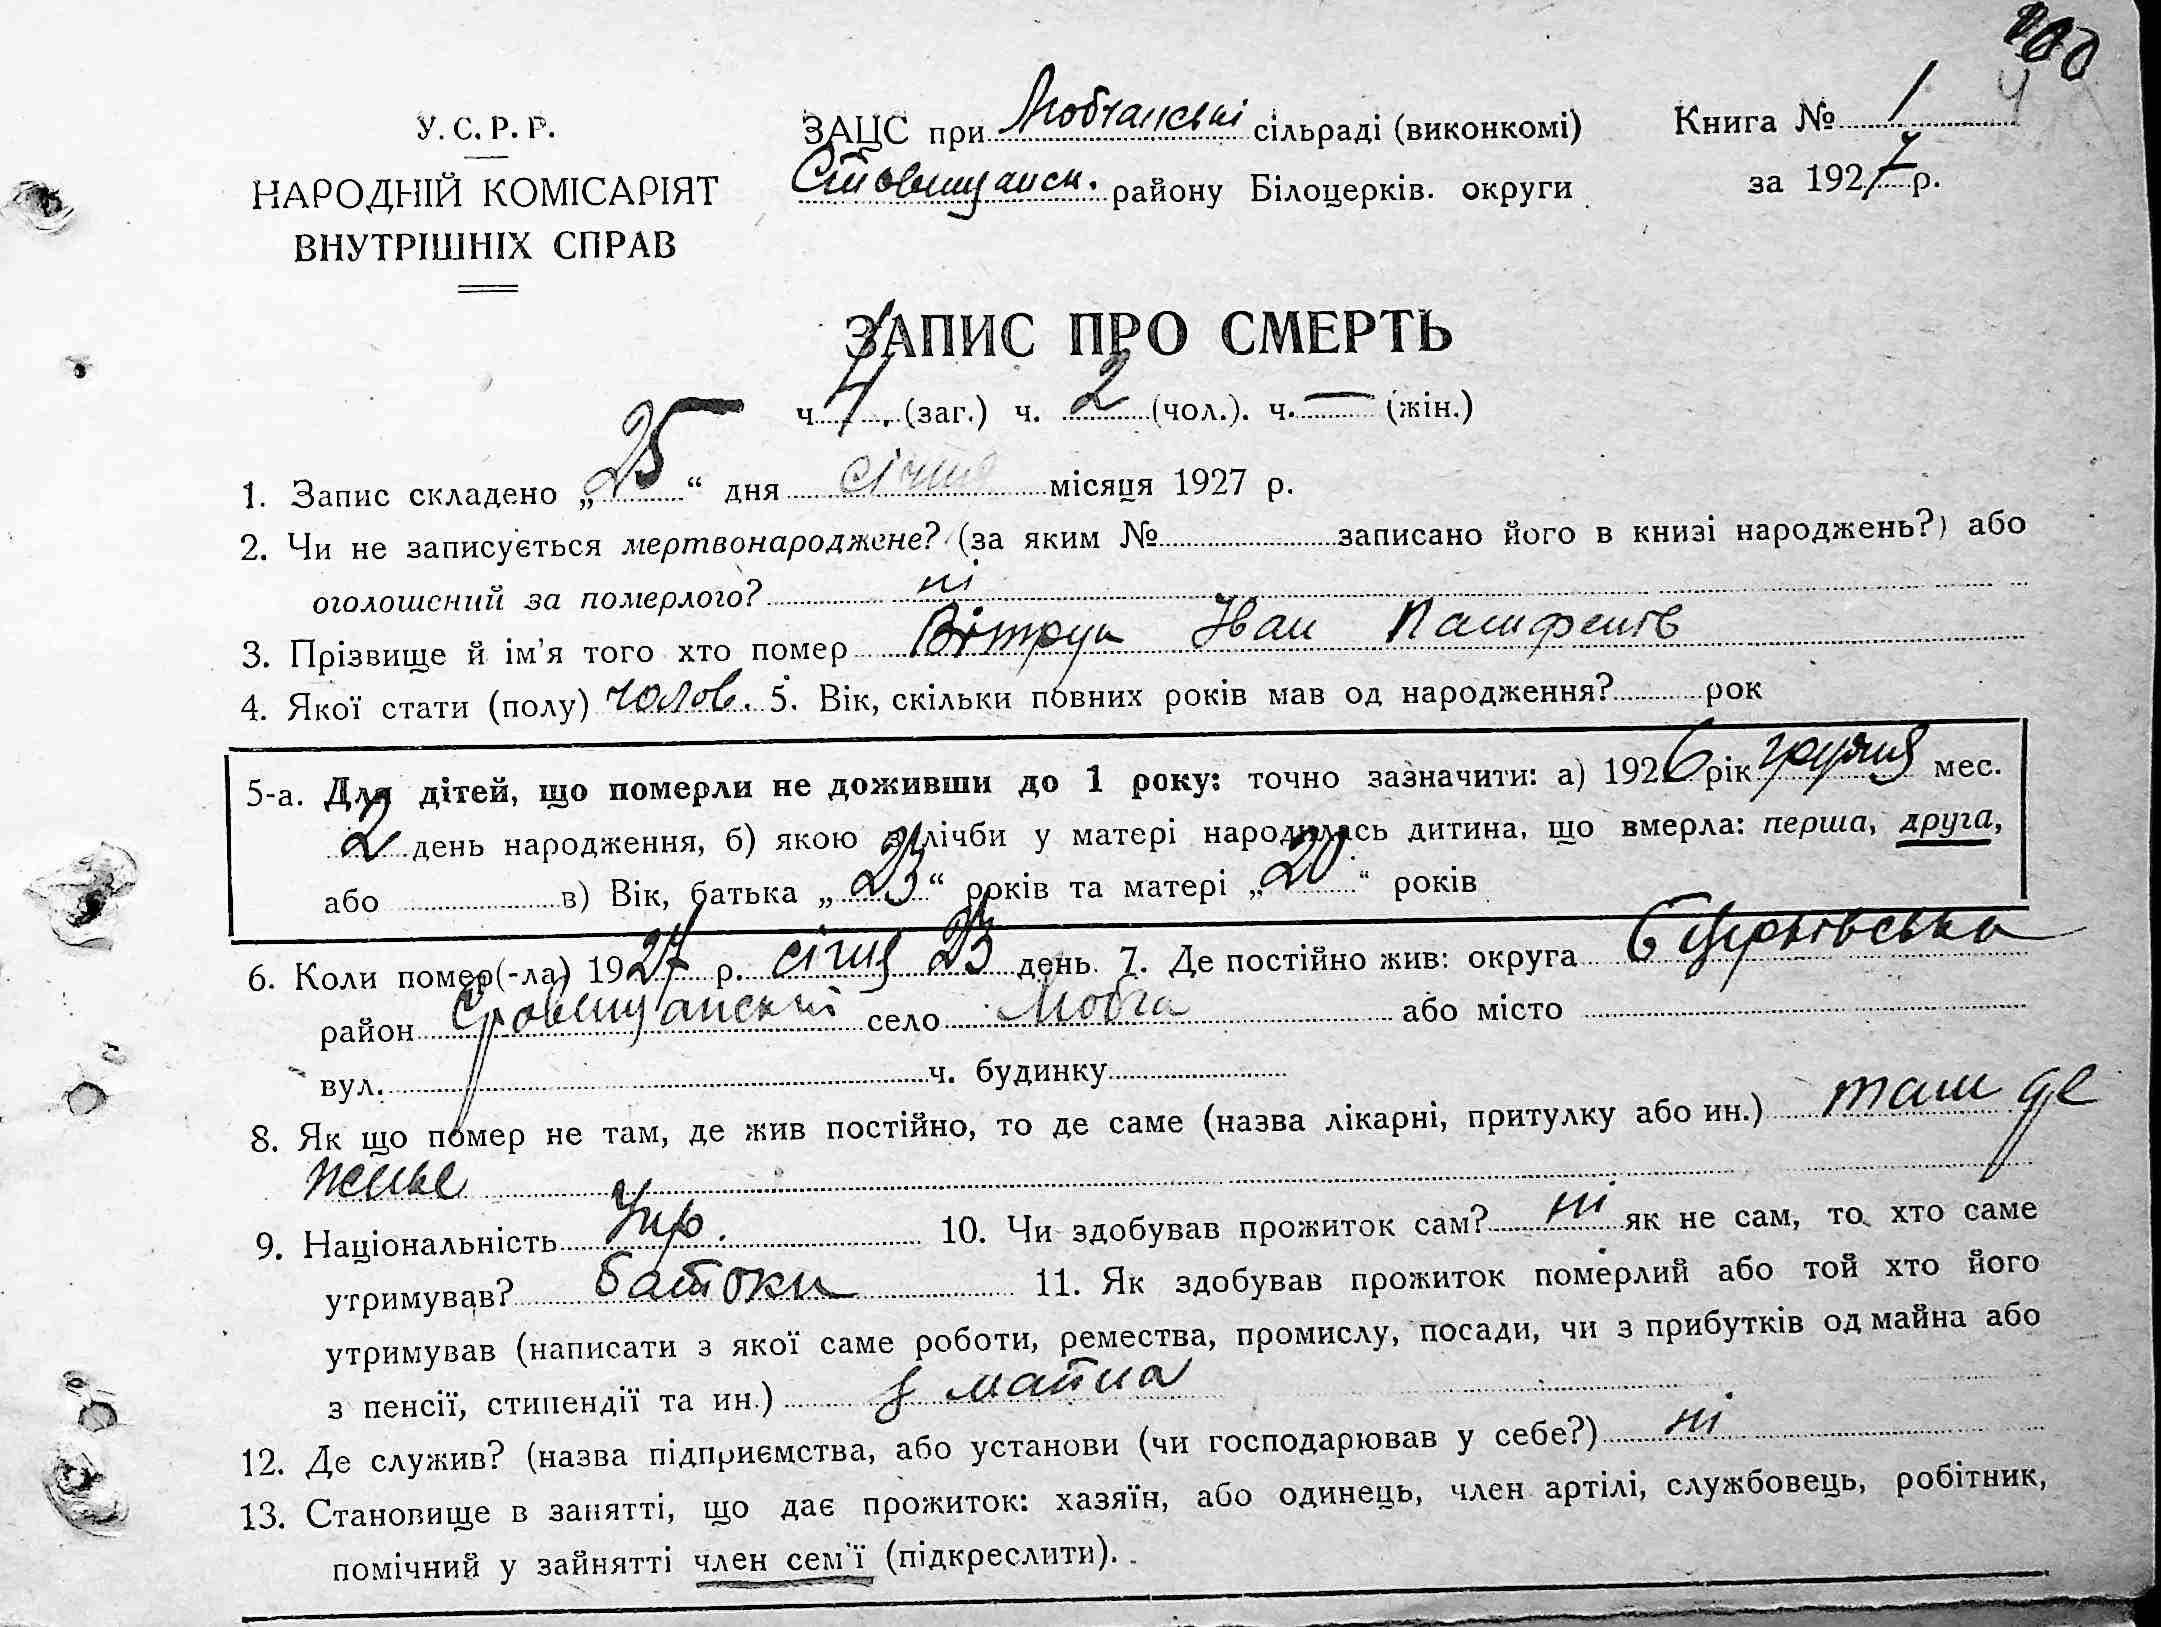 У. С. Р. Р.
НАРОДНІЙ КОМІСАРІЯТ
ВНУТРІШНІХ СПРАВ
ЗАЦС при Любчанські сільраді (виконкомі)
Ставищанск. району Білоцерків. округи
Книга № 1
за 1927 р.
ЗАПИС ПРО СМЕРТЬ
ч. 4 (заг.) ч. 2 (чол.). ч. — (жін.)
1. Запис складено „25“ дня січня місяця 1927 р.
2. Чи не записується мертвонароджене? (за яким № записано його в книзі народжень?) або
оголошений за померлого? ні
3. Прізвище й ім'я того хто помер Вітрук Іван
4. Якої стати (полу) чолов. 5. Вік, скільки повних років мав од народження? рок
5-а. Для дітей, що померли не доживши до 1 року: точно зазначити: а) 1926 рік грудня мес.
2 день народження, б) якою з лічби у матері народилась дитина, що вмерла: перша, друга,
або в) Вік, батька „23“ років та матері „20“ років
6. Коли помер(-ла) 1927 р. січня 23 день. 7. Де постійно жив: округа Бцерківська
район Ставищанский село Любча або місто
вул. ч. будинку
8. Як що помер не там, де жив постійно, то де саме (назва лікарні, притулку або ин.) там де
живе
9. Національність Укр. 10. Чи здобував прожиток сам? ні як не сам, то хто саме
утримував? батьки 11. Як здобував прожиток померлий або той хто його
утримував (написати з якої саме роботи, ремества, промислу, посади, чи з прибутків од майна або
з пенсії, стипендії та ин.) з майна
12. Де служив? (назва підприємства, або установи (чи господарював у себе?) ні
13. Становище в занятті, що дає прожиток: хазяїн, або одинець, член артілі, службовець, робітник,
помічний у зайнятті член сем'ї (підкреслити).